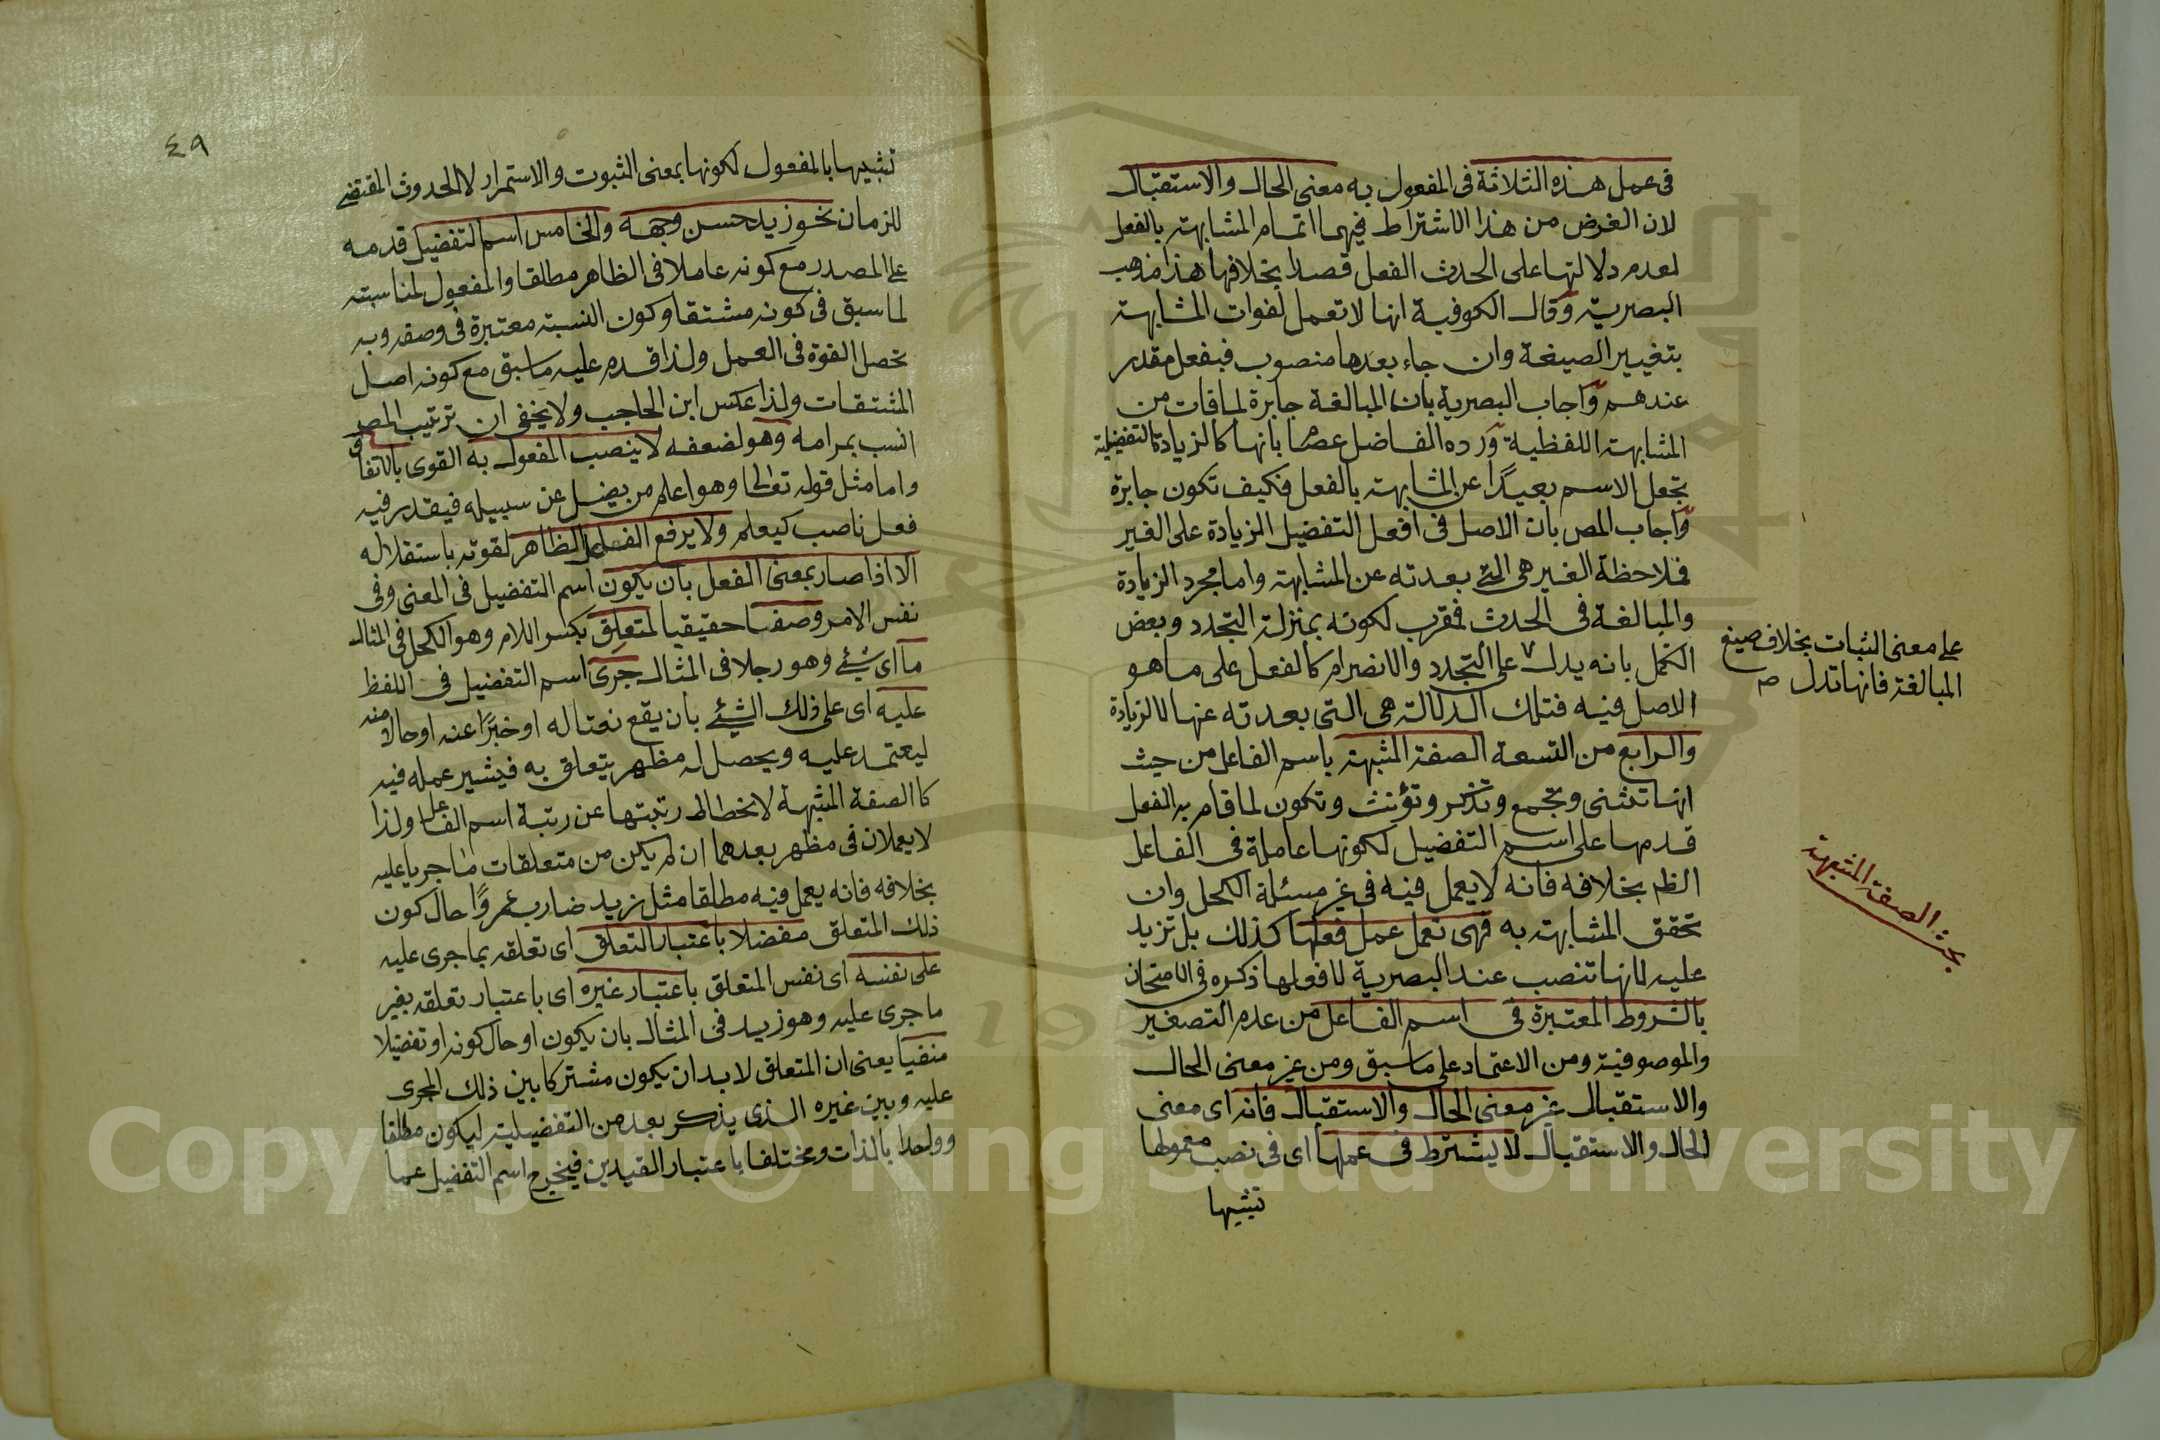 فى عمل هذه الثلاثة فى المفعول به معنى الحال والاستقبال
لان الغرض من هذا الاشتراط فيهما اتمام المشابهة بالفعل
لعدم دلالتها على الحدث الفعل قصدا بخلافها هذا مذهب
البصرية وقال الكوفية انها لا تعمل لفوات المشابهة
بتغيير الصيغة وان جاء بعدها منصوب فبفعل مقدر
عندهم واجاب البصرية بان المبالغة جابرة لما فات من
المشابهة اللفظية ورده الفاضل عصام بانها كالزيادة التفضيلية
تجعل الاسم بعيدا عن المشابهة بالفعل فكيف تكون جابرة
واجاب المص بان الاصل فى افعل التفضيل الزيادة على الغير
فملاحظة الغير هى التى بعدته عن المشابهة واما مجرد الزيادة
والمبالغة فى الحدث فمقرب لكونه بمنزلة التجدد وبعض
الكمل بانه يدل على التجدد والانصرام كالفعل على ما هو
على معنى الثبات بخلاف صيغ
المبالغة فانها تدل صح
الاصل فيه فتلك الدلالة هى التى بعدته عنها لا الزيادة
والرابع من التسعة الصفة المشبهة باسم الفاعل من حيث
انها تثنى وتجمع وتذكر وتؤنث وتكون لما قام به الفعل
قدمها على اسم التفضيل لكونها عاملة فى الفاعل
بحث الصفة المشبهة
الظ بخلافه فانه لا يعمل فيه فى غير مسئلة الكحل وان
تحقق المشابهة به فهى تعمل عمل فعلها كذلك بل تزيد
عليه لانها تنصب عند البصرية لا فعلها ذكره فى الامتحان
بالشروط المعتبرة فى اسم الفاعل من عدم التصغير
والموصوفية ومن الاعتماد على ما سبق ومن غير معنى الحال
والاستقبال غير معنى الحال والاستقبال فانه اى معنى
الحال والاستقبال لا يشترط فى عملها اى فى نصب معمولها
تشبيها
٤٩
تشبيها بالمفعول لكونها بمعنى الثبوت والاستمرار لا الحدوث المقتضى
للزمان نحو زيد حسن وجهه والخامس اسم التفضيل قدمه
على المصدر مع كونه عاملا فى الظاهر مطلقا والمفعول لمناسبته
لما سبق فى كونه مشتقا وكون النسبة معتبرة فى وصفه وبه
تحصل القوة فى العمل ولذا قدم عليه ما سبق مع كونه اصل
المشتقات ولذا عكس ابن الحاجب ولا يخفى ان ترتيب المص
انسب بمرامه وهو لضعفه لا ينصب المفعول به القوى بالاتفاق
واما مثل قوله تعالى وهو اعلم من يضل عن سبيله فيقدر فيه
فعل ناصب كيعلم ولا يرفع الفاعل الظاهر لقوته باستقلاله
الا اذا صار بمعنى الفعل بان يكون اسم التفضيل فى المعنى وفى
نفس الامر وصفا حقيقيا لمتعلق بكسر اللام وهو الكحل فى المثال
ما اى شئ وهو رجلا فى المثال جرى اسم التفضيل فى اللفظ
عليه اى على ذلك الشئ بان يقع نعتا له او خبرا عنه او حالا منه
ليعتمد عليه ويحصل له مظهر يتعلق به فيتيسر عمله فيه
كالصفة المشبهة لانحطاط رتبتها عن رتبة اسم الفاعل ولذا
لا يعملان فى مظهر بعدهما ان لم يكن من متعلقات ما جريا عليه
بخلافه فانه يعمل فيه مطلقا مثل زيد ضارب عمروًا حال كون
ذلك المتعلق مفضلا باعتبار التعلق اى تعلقه بما جرى عليه
على نفسه اى نفس المتعلق باعتبار غيره اى باعتبار تعلقه بغير
ما جرى عليه وهو زيد فى المثال بان يكون او حال كونه او تفضيلا
منفيا يعنى ان المتعلق لا بد ان يكون مشتركا بين ذلك المجرى
عليه وبين غيره الذى يذكر بعد من التفضيلية ليكون مطلقا
وواحدا بالذات ومختلفا باعتبار القيدين فيخرج اسم التفضيل عما
Copyright © King Saud University